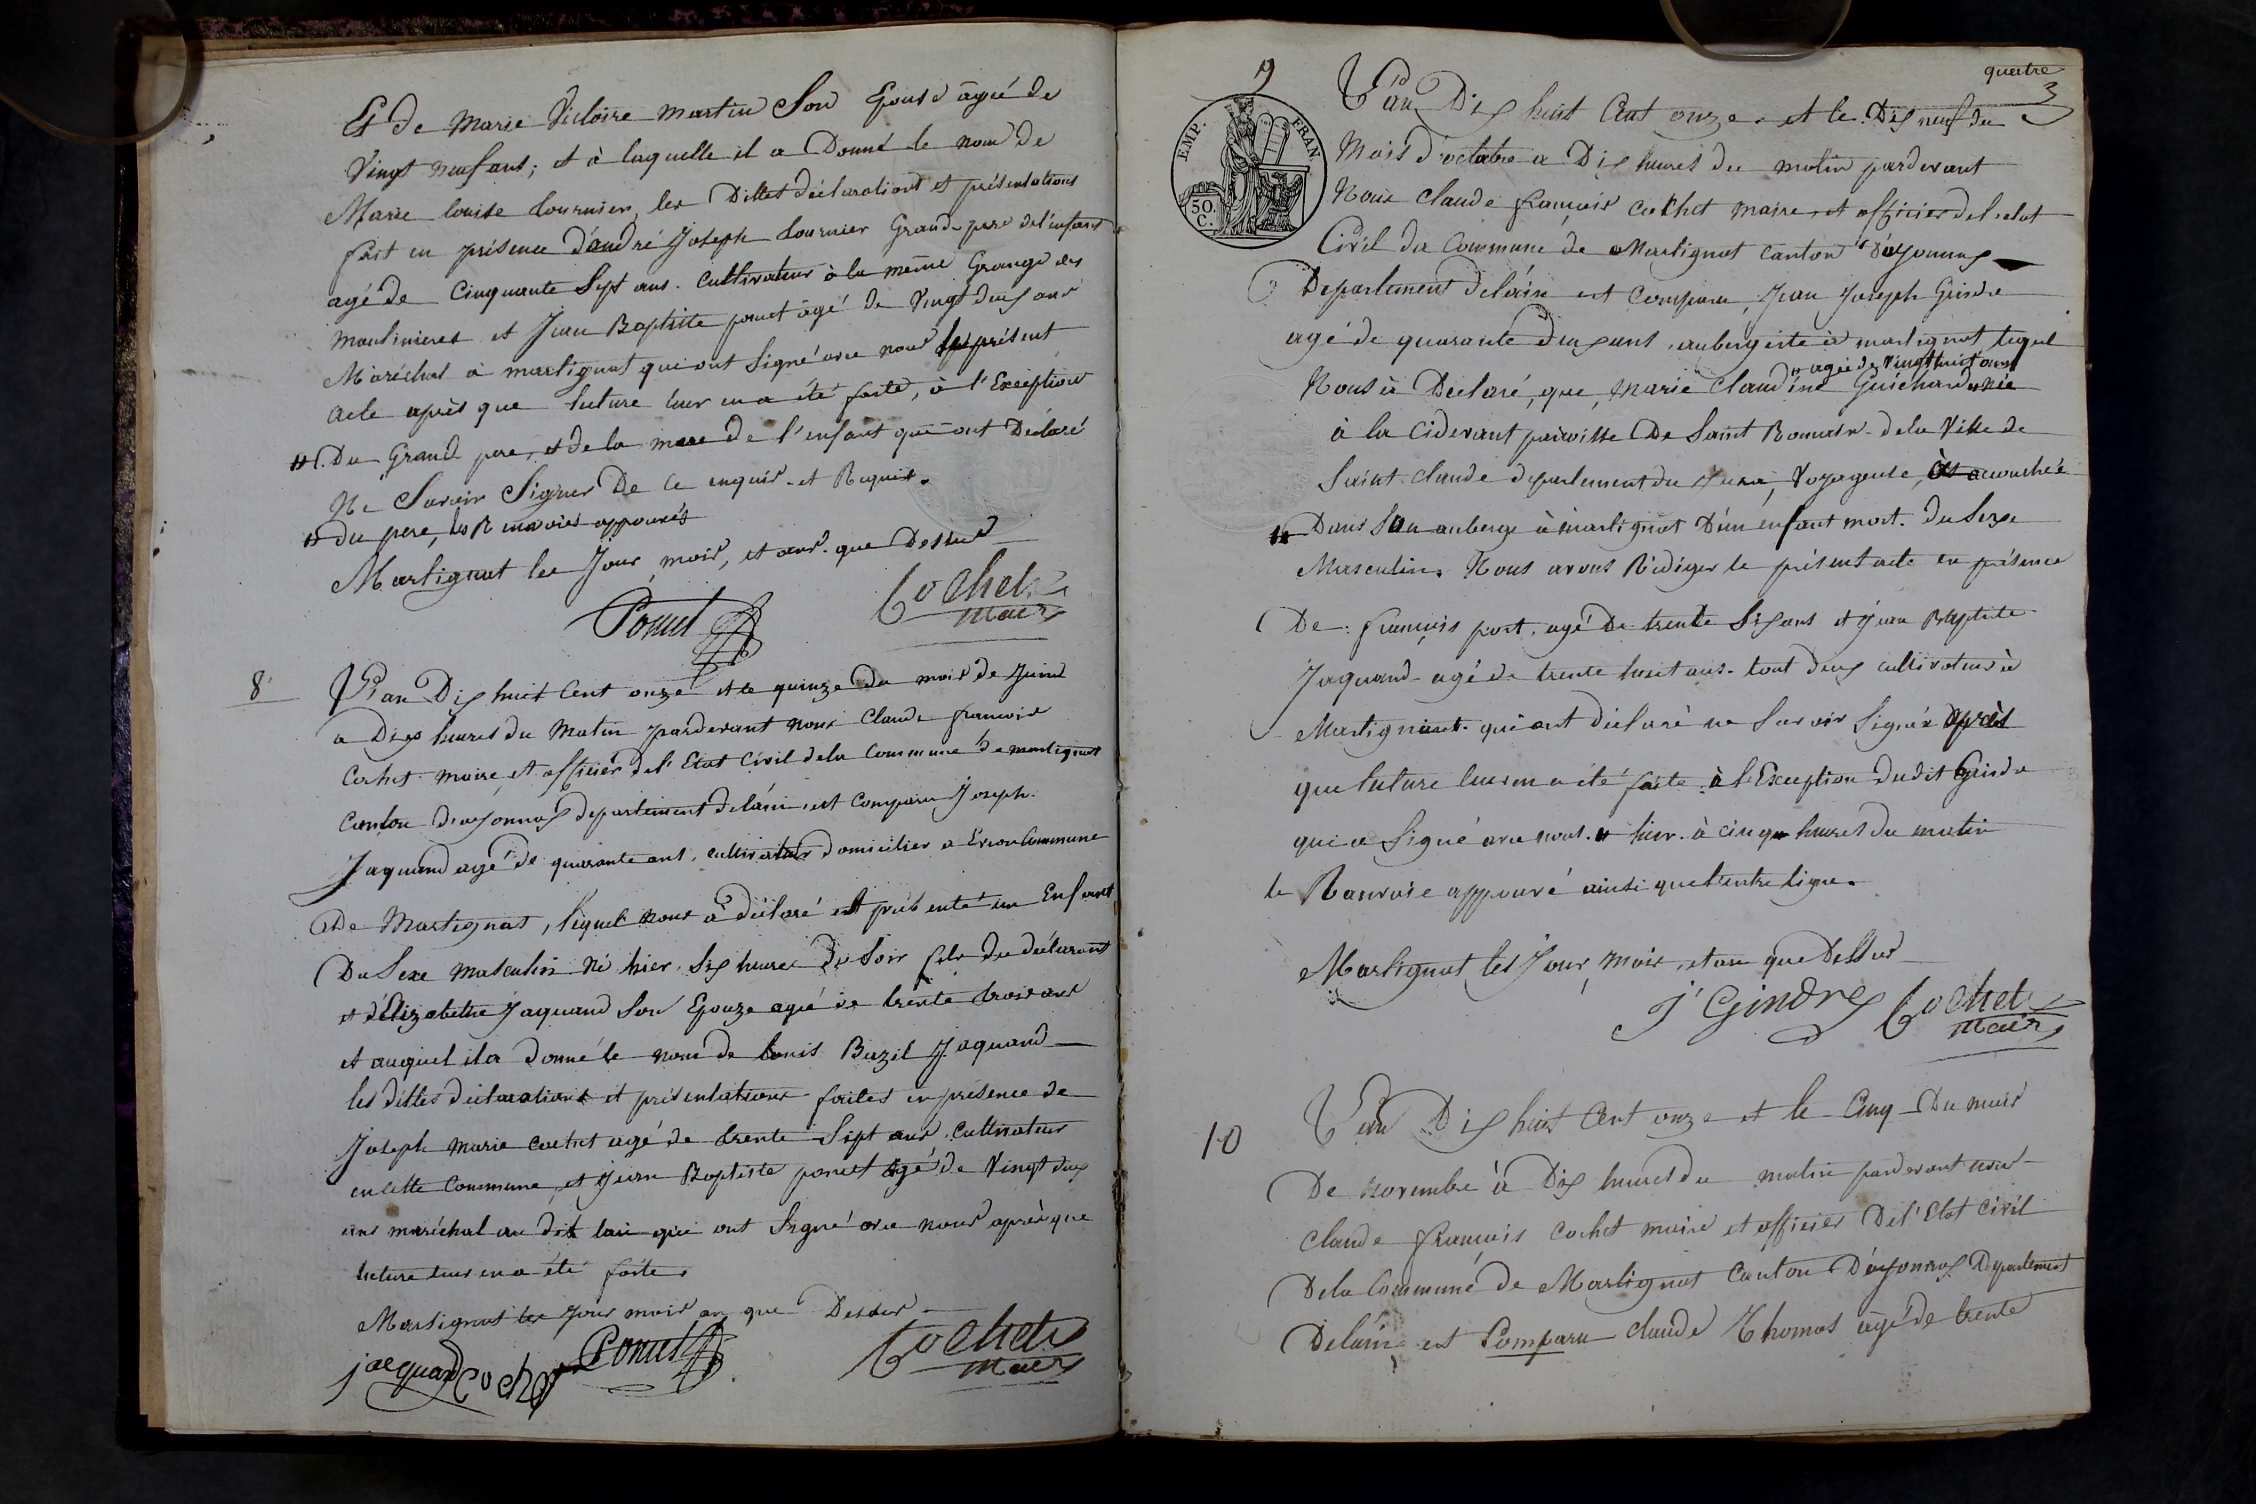 Et de Marie Victoire Martin Son Epouse agée de
Vingt neuf ans; et à laquelle il a Donné le nom de
Marie Louise Tournier, les Dittes déclarations et présentations
fait en présence d'andré Joseph Tournier Grand-pere de l'enfant
agé de Cinquante Sept ans. Cultivateur à la même Grange des
moulinieres et Jean Baptiste poncet âgé de Vingt deux ans
Maréchal à martignat qui ont Signé avec nous le présent
acte après que lecture leur en a été faite, à l'Exception
# Du Grand pere, et de la mere de l'enfant qui ont Déclaré
Ne Savoir Signer De ce enquis et Requis.
# du pere, les Renvoies approuvés
Martignat les Jour, mois, et an que Dessus
Poncet
Cochet
Maire
8
L'an Dix huit Cent onze et le quinze du mois de Juin
a Dix heures du Matin pardevant nous Claude françois
Cochet maire, et officier de l'Etat Civil de la Commune de martignat
Canton d'oyonnax departement de l'ain, est Comparu Joseph
Jaquand agé de quarante ans, cultivateur domicilier a Evron Commune
De Martignat, lequel nous à déclaré et présenté un Enfant
Du Sexe masculin né hier Six heures du Soir fils du déclarant
et d'Elizabethe Jaquand Son Epouze agée de trente trois ans
et auquel il a donné le nom de Louis Bazil Jaquand
les dittes déclarations et présentations faites en présence de
Joseph Marie Cochet agé de trente Sept ans Cultivateur
en cette Commune, et Jean Baptiste poncet agé de Vingt deux
ans maréchal au dit lieu qui ont Signé avec nous après que
lecture leur en a été faite.
Martignat les Jour mois an que Dessus
jacquand Cochet Poncet
Cochet
Maire
quatre
3
9
EMP. FRAN.
50
C.
L'an Dix huit Cent onze et le Dix neuf du
Mois d'octobre a Dix heures du matin pardevant
Nous Claude françois Cochet maire, et officier de l'etat
Civil du Commune de Martignat Canton d'oyonnax
Departement de l'ain est Comparu, Jean Joseph Gindre
agé de quarante deux ans, aubergiste à martignat lequel
# agée de Vingt huit ans
Nous à Déclaré, que, Marie Claudine Guichard née
à la cidevant paroisse De Saint Romain de la Ville de
Saint Claude departement du Jura, Voyagente, est acouchée
# Dans Son auberge à martignat D'un enfant mort du Sexe
Masculin. Nous avons Rédiger le présent acte en présence
De françois port, agé De trente Six ans et Jean Baptiste
Jaquand agé de trente huit ans tout deux cultivateur à
Martignat qui ont déclaré ne Savoir Signer après
que lecture leur en a été faite, à l'Exception du dit Gindre
qui a Signé avec nous. # hier à cinq heures du matin
le Ranvoie approuvé ainsi que l'entre ligne.
Martignat les Jour, mois, et an que Dessus
J' Gindre Cochet
Maire
10
L'an Dix huit Cent onze et le Cinq Du mois
De novembre à Dix heures du matin pardevant nous
Claude François Cochet maire et officier De l'Etat Civil
De la Commune de Martignat Canton D'oyonnax Departement
De l'ain est Comparu Claude Thomas agé de trente